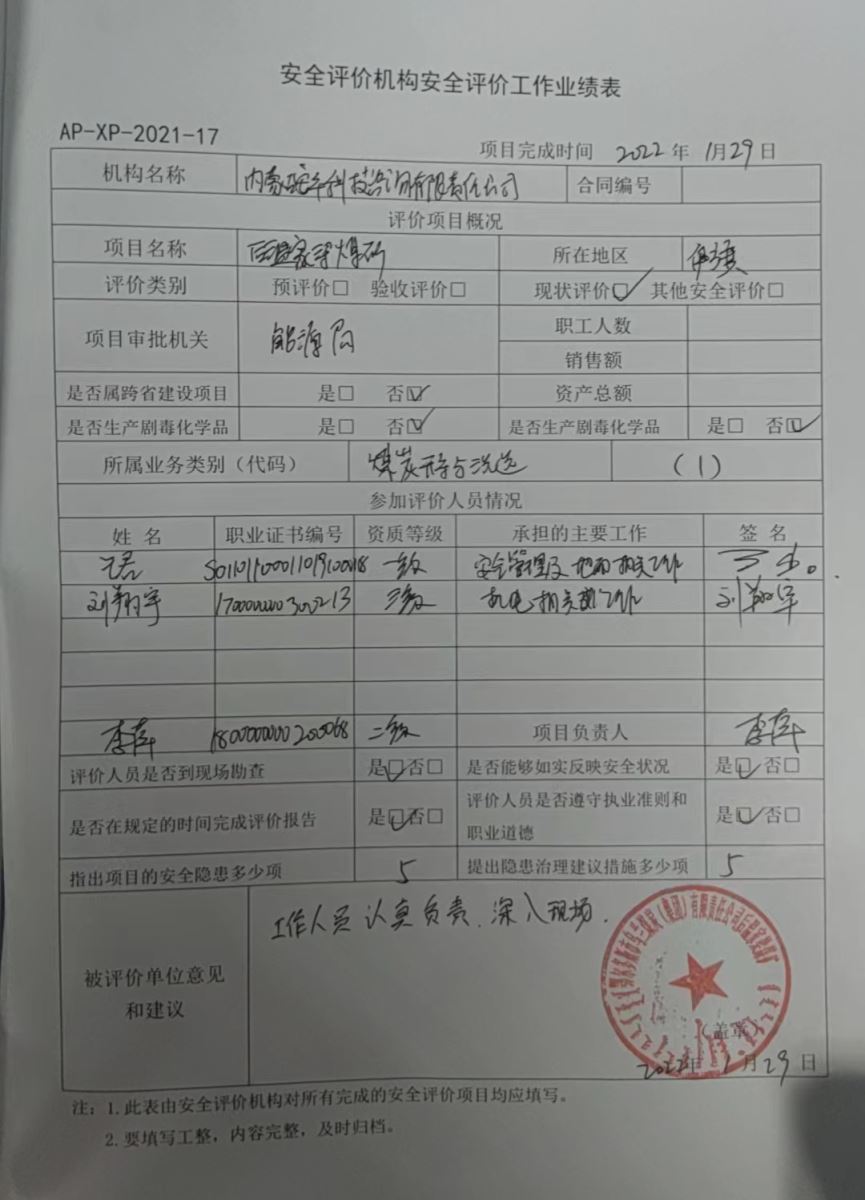 安全评价机构安全评价工作业绩表
AP-XP-2021-17
项目完成时间 2022 年 1月29日
机构名称 内蒙 科技咨询有限责任公司 合同编号
评价项目概况
项目名称 后温家梁煤矿 所在地区 伊旗
评价类别 预评价□ 验收评价□ 现状评价☑ 其他安全评价□
项目审批机关 能源局 职工人数
销售额
是否属跨省建设项目 是□ 否☑ 资产总额
是否生产剧毒化学品 是□ 否☑ 是否生产剧毒化学品 是□ 否☑
所属业务类别（代码） 煤炭 与洗选 （1）
参加评价人员情况
姓 名 职业证书编号 资质等级 承担的主要工作 签 名
一级 安全管理及地面相关工作
刘翔宇 1700000000300213 三级 机电相关 工作 刘翔宇
李萍 1800000000200068 二级 项目负责人 李萍
评价人员是否到现场勘查 是☑否□ 是否能够如实反映安全状况 是☑否□
是否在规定的时间完成评价报告 是☑否□ 评价人员是否遵守执业准则和
职业道德 是☑否□
指出项目的安全隐患多少项 5 提出隐患治理建议措施多少项 5
被评价单位意见
和建议
工作人员认真负责、深入现场.
（盖章）
2022年1月29日
注：1.此表由安全评价机构对所有完成的安全评价项目均应填写。
2.要填写工整，内容完整，及时归档。